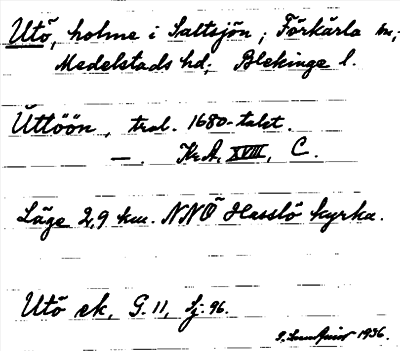 Utö, holme i Saltsjön; Förkärla sn,
Medelstads hd; Blekinge l.
Uttöön, trol. 1680-talet.
—. Kr.A, XVIII, C.
Läge 2,9 km. NNÖ Hasslö kyrka.
Utö ek, G. 11, Sj. 96.
1936.